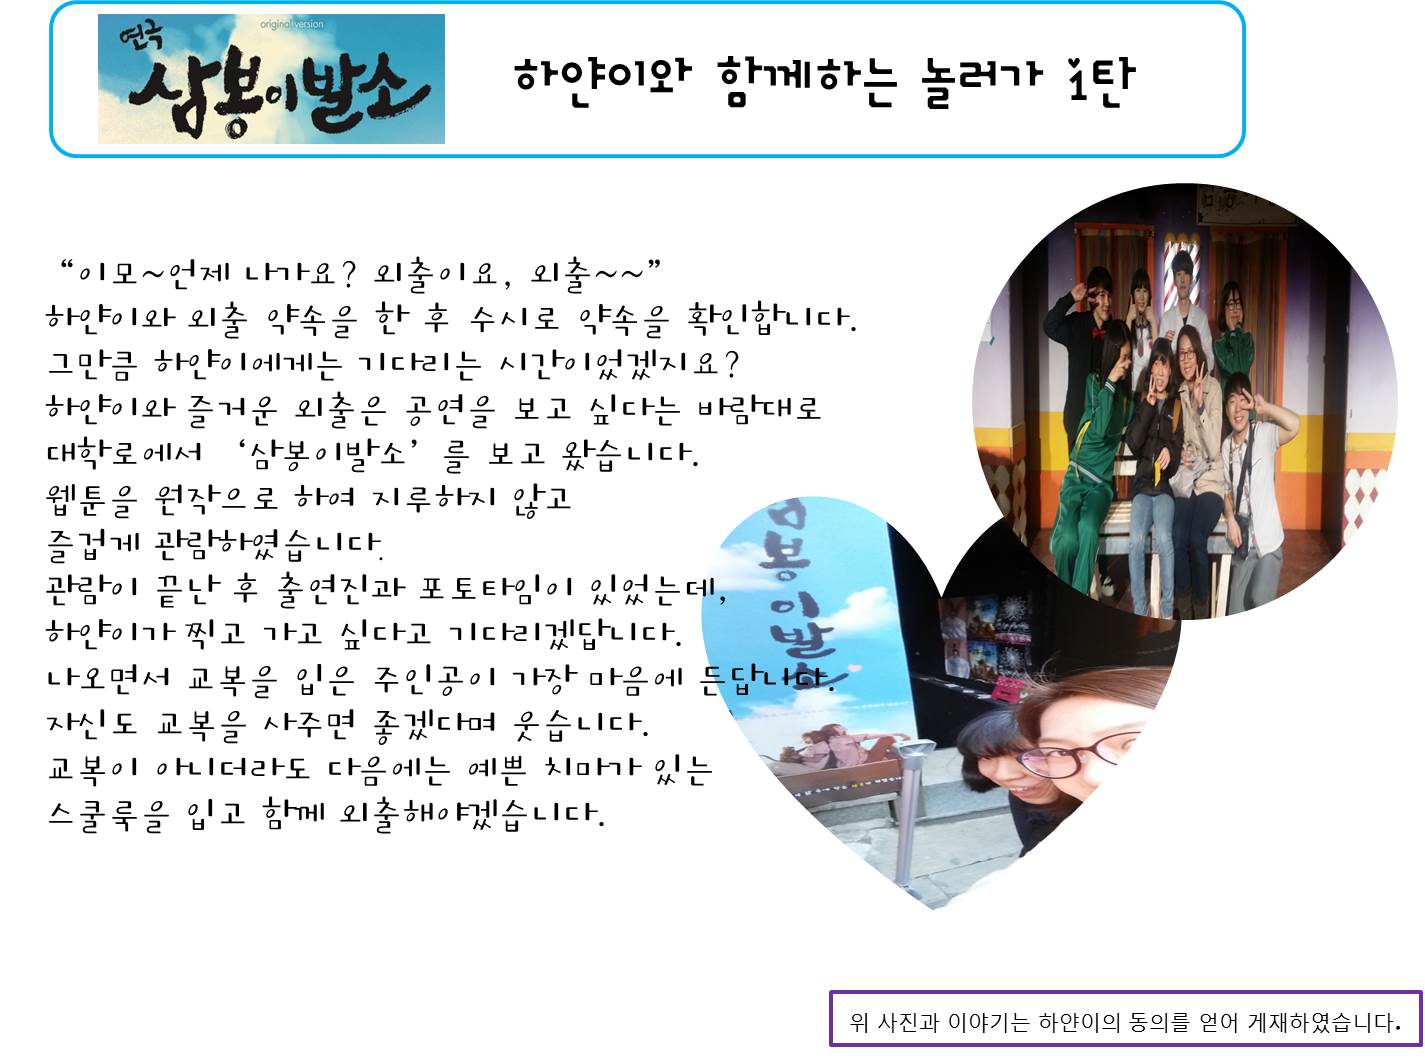 연극
original version
삼봉이발소
하얀이와 함께하는 놀러가 1탄
“이모~언제 나가요? 외출이요, 외출~~”
하얀이와 외출 약속을 한 후 수시로 약속을 확인합니다.
그만큼 하얀이에게는 기다리는 시간이었겠지요?
하얀이와 즐거운 외출은 공연을 보고 싶다는 바람대로
대학로에서 ‘삼봉이발소’를 보고 왔습니다.
웹툰을 원작으로 하여 지루하지 않고
즐겁게 관람하였습니다.
관람이 끝난 후 출연진과 포토타임이 있었는데,
하얀이가 찍고 가고 싶다고 기다리겠답니다.
나오면서 교복을 입은 주인공이 가장 마음에 든답니다.
자신도 교복을 사주면 좋겠다며 웃습니다.
교복이 아니더라도 다음에는 예쁜 치마가 있는
스쿨룩을 입고 함께 외출해야겠습니다.
삼봉이발소
위 사진과 이야기는 하얀이의 동의를 얻어 게재하였습니다.